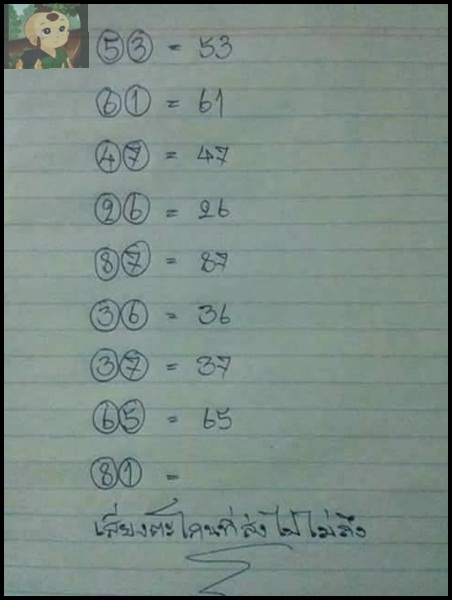 53 = 53
61 = 61
47 = 47
26 = 26
87 = 87
36 = 36
37 = 37
65 = 65
81 =
เสียงตะโกนที่ส่งไปไม่ถึง